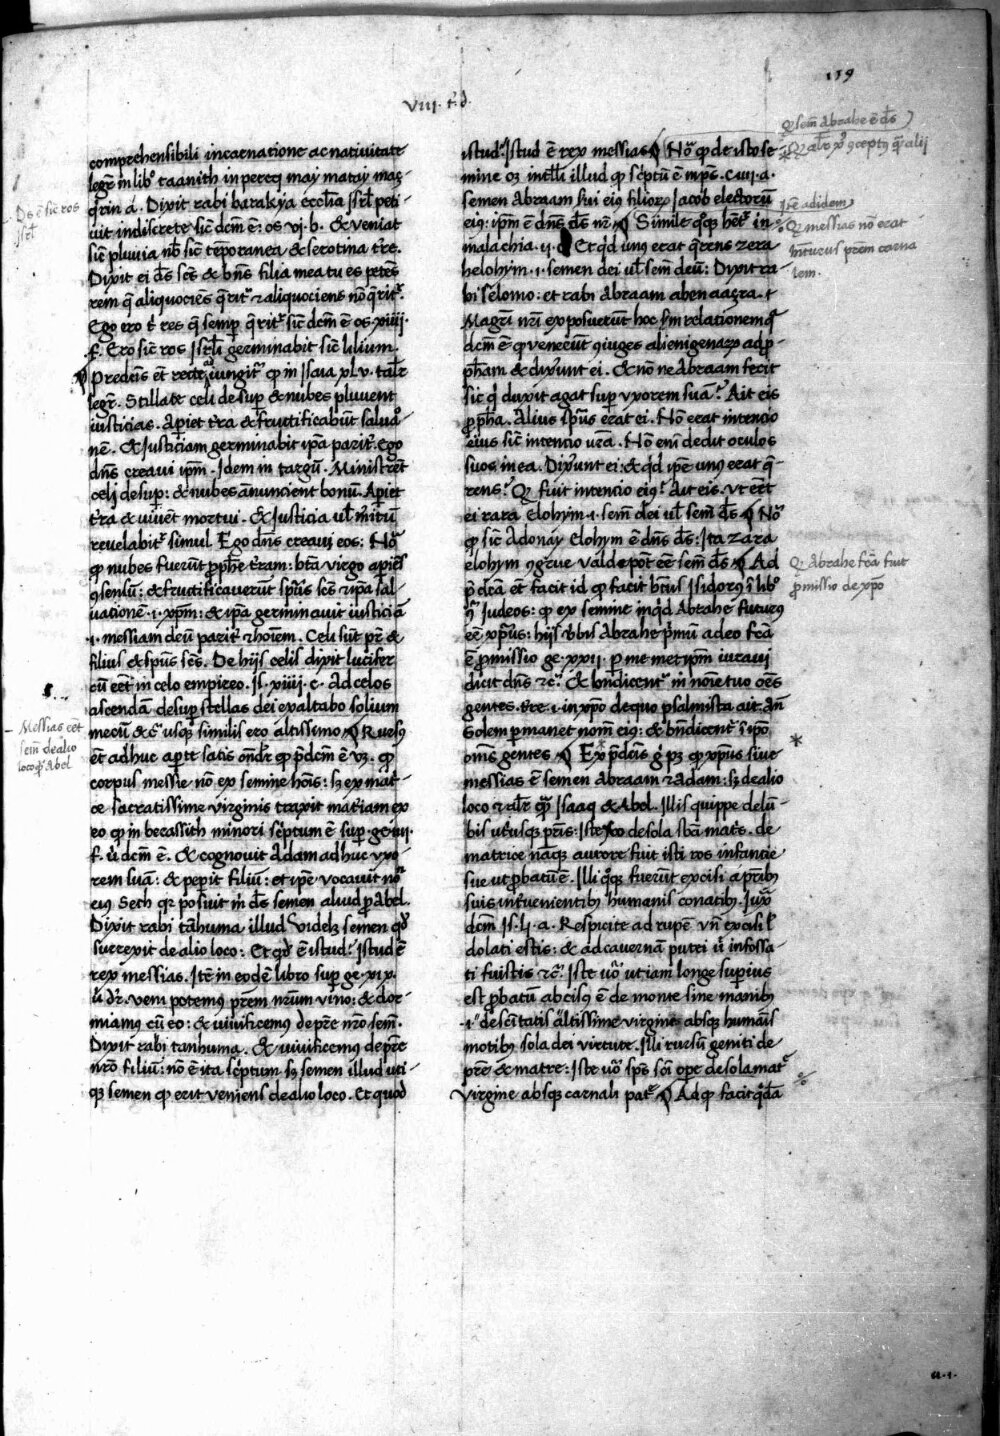 139
VIII. t. d.
comprehensibili incarnatione ac nativitate
legr̄ in libº taanith in pereq may matay mas-
q̄rin a. Dixit rabi barakya eccl̄ia Jsrl̄ peti-
vit indiscrete sic̄ dcm̄ ē: os. vj. b. & veniat
sic̄ pluvia nob̄ sic̄ tēporanea & serotina tr̄e.
Dixit ei d̄s sc̄s & bn̄s filia mea tu es petēs
rem q̄ aliquociēs q̄rit᷑ ⁊ aliquociens nō q̄rit᷑.
Ego ero t̄ res q̄ semp̄ q̄rit᷑ sic̄ dcm̄ ē os. xiiii.
f. Ero sic̄ ros Jsrl̄ germinabit sic̄ lilium.
¶ Predc̄īs ēt recte iungit᷑ qp̄ in Jsaia xlv. tal̄r
legr̄. Stillate celi desup & nubes pluvent
iusticias. Apiet t̄ra & fructificabūt salvā
nē. & Justiciam germinabit ip̄a parit̄. Ego
dn̄s creavi ip̄m. Jdem in targū. Ministrēt
celi desup: & nubes annuncient bonū. Apiet
t̄ra & vivēt mortui. & Justicia ul̄ m̄itū
revelabit᷑ simul Ego dn̄s creavi eos: Nō
qp̄ nubes fuerūt p̄ph̄e t̄ram: btā virgo apiēs
ꝯsensū: & fructificaverūt spūs sc̄s ⁊ ip̄a sal-
vationē .i. xp̄m: & ip̄a germinavit iusticiā
.i. messiam deū parit᷑ ⁊ hoīem. Celi sūt pr̄ &
filius & spūs sc̄s. De hijs celis dixit lucifer
cū eēt in celo empireo. Js. xiiii. c. Ad celos
ascendā desup stellas dei exaltabo solium
mecū & c̄ usq̄ similis ero altissimo ¶ Rursꝰ
ēt adhuc apte satis on̄dr̄ qp̄ p̄dcm̄ ē vꝫ. qp̄
corpus messie nō ex semine hoīs: sꝫ ex mat-
ce sacratissime virginis traxit mat̄iam ex
eo qp̄ in berassith minori sc̄ptum ē sup ge. iiij.
f. ū dcm̄ ē. & cognovit Adam adhuc uxo-
rem suā: & pepit filiū: et ip̄e vocavit nō
eiꝰ Seth qr posuit m̄ d̄s semen aliud p̄ Abel.
Dixit rabi tāhuma illud Videlꝫ semen qd̄
surrexit de alio loco: Et qd̄ ē istud? Jstud ē
rex messias. Jtē in eodē libro sup ge. xix.
ū dr̄. veni potemꝰ pr̄em nr̄um vino: & dor-
miamꝰ cū eo: & vivificemꝰ de pr̄e nr̄o sem̄.
Dixit rabi tanhuma. & vivificemꝰ de pr̄e
nr̄o filiū: nō ē ita sc̄ptum sꝫ semen illud uti-
qꝫ semen qp̄ erit veniens de alio loco. Et quod
istud? Jstud ē rex messias ¶ Nō qp̄ de isto se-
mine oꝫ intl̄li illud qp̄ sc̄ptū ē in ps̄. cviii. a.
semen Abraam sui eiꝰ filioꝝ Jacob electorū
eiꝰ: ip̄m ē dn̄s d̄s nr̄ ¶ Simile qꝫ her̄ in
malachia. ii. d. Et qd̄ unꝰ erat q̄rens zera
helohym .i. semen dei ul̄ sem̄ deū: Dixit ra-
bi selomo: et rabi Abraam aben aazra. t
Magr̄i nr̄i exposuerūt hoc sm̄ relationem q̄
dcm̄ ē qp̄ venerūt ꝯiuges alienigenarꝝ ad p̄-
ph̄am & dixerunt ei. & nōne Abraam fecit
sic q̄ duxit agat sup uxorem suā? Ait eis
p̄ph̄a. Alius spūs erat ei. Nō erat intencio
eius sic̄ intencio vr̄a. Nō enī dedit oculos
suos in ea. Dixerunt ei: & qd̄ ip̄e unꝰ erat q̄-
rens? Q̄ fuit intencio eiꝰ? Ait eis. Ut eēt
ei zara Elohym .i. sem̄ dei ul̄ sem̄ d̄s ¶ Nō
qp̄ sic̄ Adonay Elohym ē dn̄s d̄s: Jta zara
elohym ꝯgrue valde pōt eē sem̄ d̄s ¶ Ad
p̄dc̄a ēt facit id qp̄ facit btūs Jsidorꝰ ī libº
ꝯ̄ Judeos: qp̄ ex semine inqd̄ Abrahe futurꝰ
eē xp̄us: hijs v̄bis Abrahe p̄mū adeo fcā
ē p̄missio ge. xxii. p̄ memetip̄m iuravi
dicit dn̄s ⁊c̄. & bn̄dicent᷑ in noīe tuo oēs
gentes t̄re .i. in xp̄o de quo psalmista ait. An̄
solem permanet nom̄ eiꝰ: & bn̄dicent᷑ ī ip̄o
om̄s gentes ¶ Ex p̄dc̄is ḡ pꝫ qp̄ xp̄us sive
messias ē semen Abraam ⁊ Adam: sꝫ de alio
loco ⁊ al̄r q̄ Jsaaq & Abel. Jllis quippe delū-
bis utriusq̄ prīs: Jste vº de sola sc̄ā matr̄s. de
matrice nāqꝫ aurore fuit isti ros infancie
sue ut p̄batū ē. Jlli qꝫ fuerūt excisi a p̄ribꝫ
suis intervenientibꝫ humanis conatibꝫ. Juxᵃ
dcm̄ Js. Lj. a. Respicite ad rupē un̄ excisi &
dolati estis: & ad cavernā putei ū infossa-
ti fuistis ⁊c̄. Jste vº ut iam longe supius
est p̄batū abcisꝰ ē de monte sine manibꝫ
.i. de scītatis altissime virgine absqꝫ humāis
motibꝫ sola dei virtute. Jlli rursū geniti de
pr̄e & matre: Jste vº spē sc̄i ope de sola mat᷑
virgine absqꝫ carnali pat᷑ ¶ Ad qp̄ facit q̄dā
Ds ē sic̄ ros
Jsrl̄
Messias ēēt
sem̄ de alio
loco qp̄ Abel
Q̄ sem̄ Abrahe ē d̄s
Jtē ad idem
Q̄ messias nō erat
h̄iturus pr̄em carna
lem.
Q̄ Abrahe fcā fuit
p̄missio de xp̄o
a. 1.